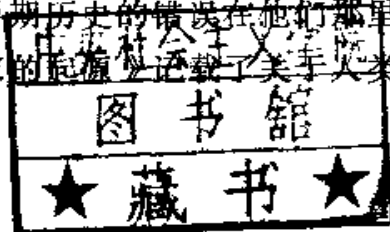 期历史的错误在他们那里
的起源》记载了关于人类
图书馆
★藏书★